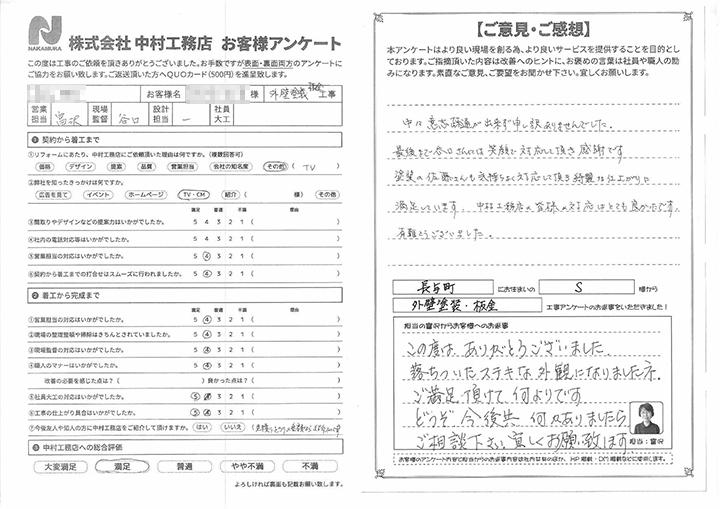 NAKAMURA
株式会社 中村工務店 お客様アンケート
この度は工事のご依頼を頂きありがとうございました。お手数ですが表面・裏面両方のアンケートに
ご協力をお願い致します。ご返送頂いた方へQUOカード(500円)を進呈致します。
お客様名 様 外壁塗装 板金 工事
営業担当 富沢 現場監督 谷口 設計担当 ー 社員大工
❶ 契約から着工まで
①リフォームにあたり、中村工務店にご依頼頂いた理由は何ですか。(複数回答可)
価格 デザイン 提案 品質 営業担当 会社の知名度 その他 ( TV )
②弊社を知ったきっかけは何ですか。
広告を見て イベント ホームページ TV・CM 紹介 ( 様) その他
満足 普通 不満 理由
③間取りやデザインなどの提案力はいかがでしたか。 5 4 3 2 1 ( )
④社内の電話対応等はいかがでしたか。 5 4 3 2 1 ( )
⑤営業担当の対応はいかがでしたか。 5 4 3 2 1 ( )
⑥契約から着工までの打合せはスムーズに行われましたか。 5 4 3 2 1 ( )
❷ 着工から完成まで
満足 普通 不満 理由
①営業担当の対応はいかがでしたか。 5 4 3 2 1 ( )
②現場の整理整頓や掃除はきちんとされていましたか。 5 4 3 2 1 ( )
③現場監督の対応はいかがでしたか。 5 4 3 2 1 ( )
④職人のマナーはいかがでしたか。 5 4 3 2 1 ( )
改善の必要を感じた点は?( ) 良かった点は?( )
⑤社員大工の対応はいかがでしたか。 5 4 3 2 1 ( )
⑥工事の仕上がり具合はいかがでしたか。 5 4 3 2 1 ( )
⑦今後友人や知人の方に中村工務店をご紹介して頂けますか。 はい いいえ
❸ 中村工務店への総合評価
大変満足 満足 普通 やや不満 不満
よろしければ裏面も記載お願い致します。
【ご意見・ご感想】
本アンケートはより良い現場を創る為、より良いサービスを提供することを目的と
しております。ご指摘頂いた内容は改善へのヒントに、お褒めの言葉は社員や職人の励
みになります。素直なご意見、ご要望をお聞かせ下さい。宜しくお願い致します。
中々意志疎通が出来ず申し訳ありませんでした。
最後まで谷口さんには笑顔で対応して頂き感謝です
塗装の佐藤さんも気持ちよく対応して頂き綺麗な仕上がりに
満足しています。中村工務店の皆様の対応はとても良かったです。
有難うございました。
長与町 にお住まいの S 様から
外壁塗装・板金 工事アンケートのお返事をいただきました!
担当の富沢からお客様へのお返事
この度は、ありがとうございました。
落ちついたステキな外観になりましたネ。
ご満足頂けて何よりです
どうぞ今後共何かありましたら
ご相談下さい。宜しくお願い致します。
担当:富沢